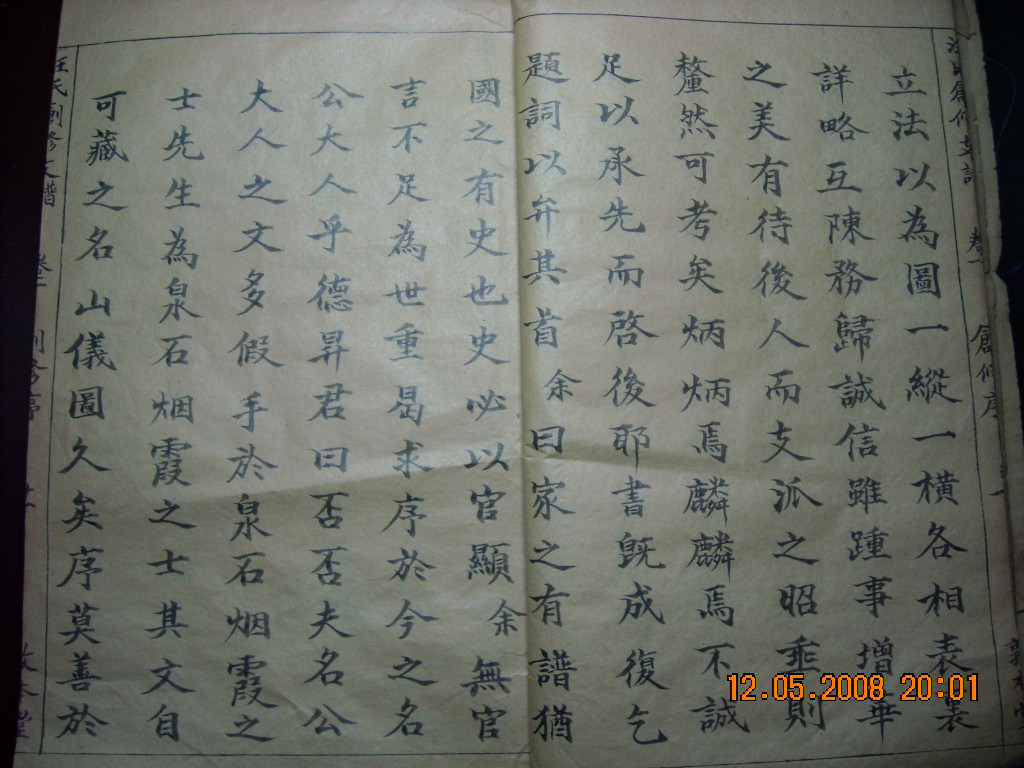 立法以為圖一縱一橫各相表裏
詳略互陳務歸誠信雖踵事增華
之美有待後人而支派之昭垂則
釐然可考矣炳炳焉麟麟焉不誠
足以承先而啓後耶書既成復乞
題詞以弁其首余曰家之有譜猶
國之有史也史必以官顯余無官
言不足為世重曷求序於今之名
公大人乎德昇君曰否否夫名公
大人之文多假手於泉石烟霞之
士先生為泉石烟霞之士其文自
可藏之名山儀圖久矣序莫善於
汪氏創修支譜 卷一 創修序
12.05.2008 20:01